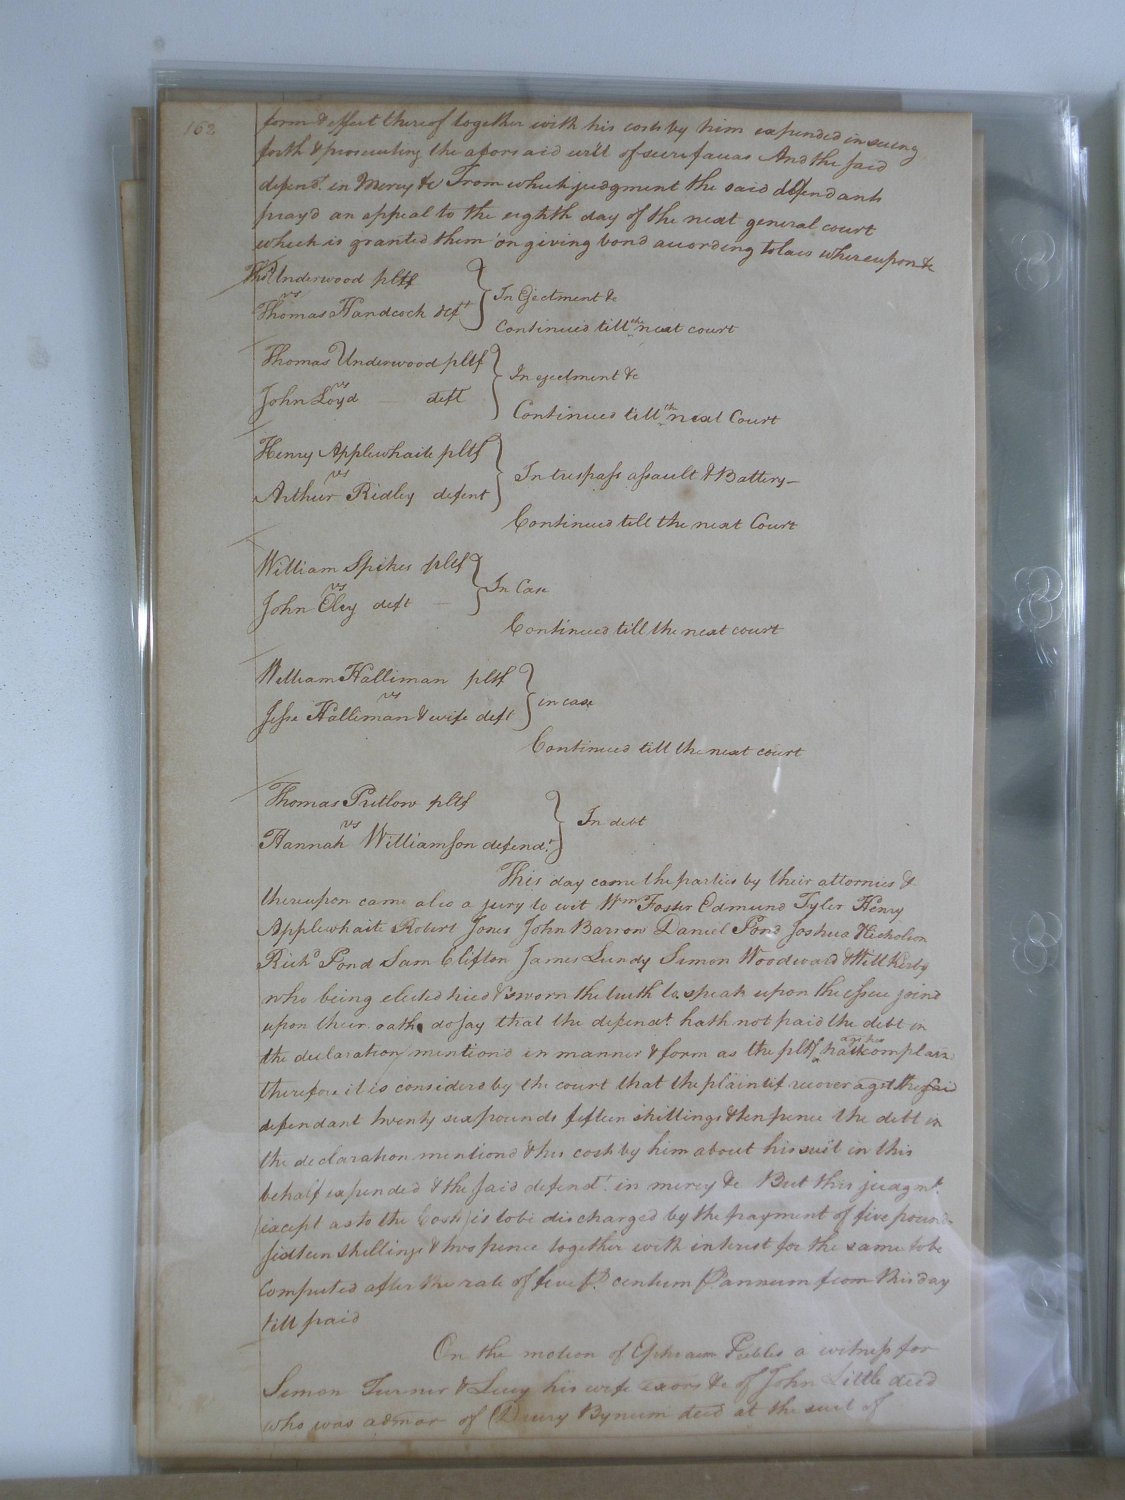 162
form & effect thereof together with his costs by him expended in suing
forth & prosecuting the aforsaid writ of scire facias And the said
defendt. in Mercy &c From which judgment the said defendants
pray'd an appeal to the eighth day of the next general court
which is granted them on giving bond according to law whereupon &c
Thos. Underwood pltf
vs
Thomas Handcock deft
In Ejectment &c
Continued till the next court
Thomas Underwood pltf
vs
John Loyd deft
In ejectment &c
Continued till the next Court
Henry Applewhaite pltf
vs
Arthur Ridley defent
In trespass assault & Battery
Continued till the next Court
William Spikes pltf
vs
John Eley deft
In Case
Continued till the next court
William Halliman pltf
vs
Jesse Halliman & wife deft
in case
Continued till the next court
Thomas Pretlow pltf
vs
Hannah Williamson defendt.
In debt
This day came the parties by their attornies &
thereupon came also a jury to wit Wm Foster Edmund Tyler Henry
Applewhaite Robert Jones John Barrow Daniel Pond Joshua Nicholson
Richd Pond Sam Clifton James Lundy Simon Woodward & Will Kirby
who being elected tried & sworn the truth to speak upon the issue joind
upon their oath do say that the defendt. hath not paid the debt in
the declaration mentiond in manner & form as the pltf agt her hath complain
therefore it is considerd by the court that the plaintif recover agst the said
defendant twenty six pounds fifteen shillings & ten pence the debt in
the declaration mentiond & his costs by him about his suit in this
behalf expended & the said defendt. in mercy &c But this judgmt.
(except as to the Costs) is to be discharged by the payment of five pounds
sixteen shillings & two pence together with interest for the same to be
computed after the rate of five pr. centum pr annum from this day
till paid
On the motion of Ephraim Peebles a witness for
Simon Turner & Lucy his wife exors &c of John Little decd
who was admor of Drury Bynum decd at the suit of